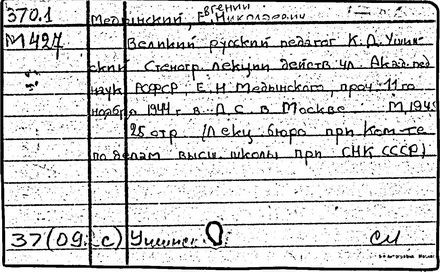 Евгений
370.1 Медынский, Е. Николаевич
М427 Великий русский педагог К. Д. Ушин-
ский Стеногр. лекции действ. чл. Акад. пед.
наук РСФСР, Е. Н. Медынского, проч. 11-го
ноября 1944 г. в Д С в Москве М 1945
25 стр. (Лекц. бюро при Ком-те
по делам высш. школы при СНК СССР)
37(09:с) Ушинс.